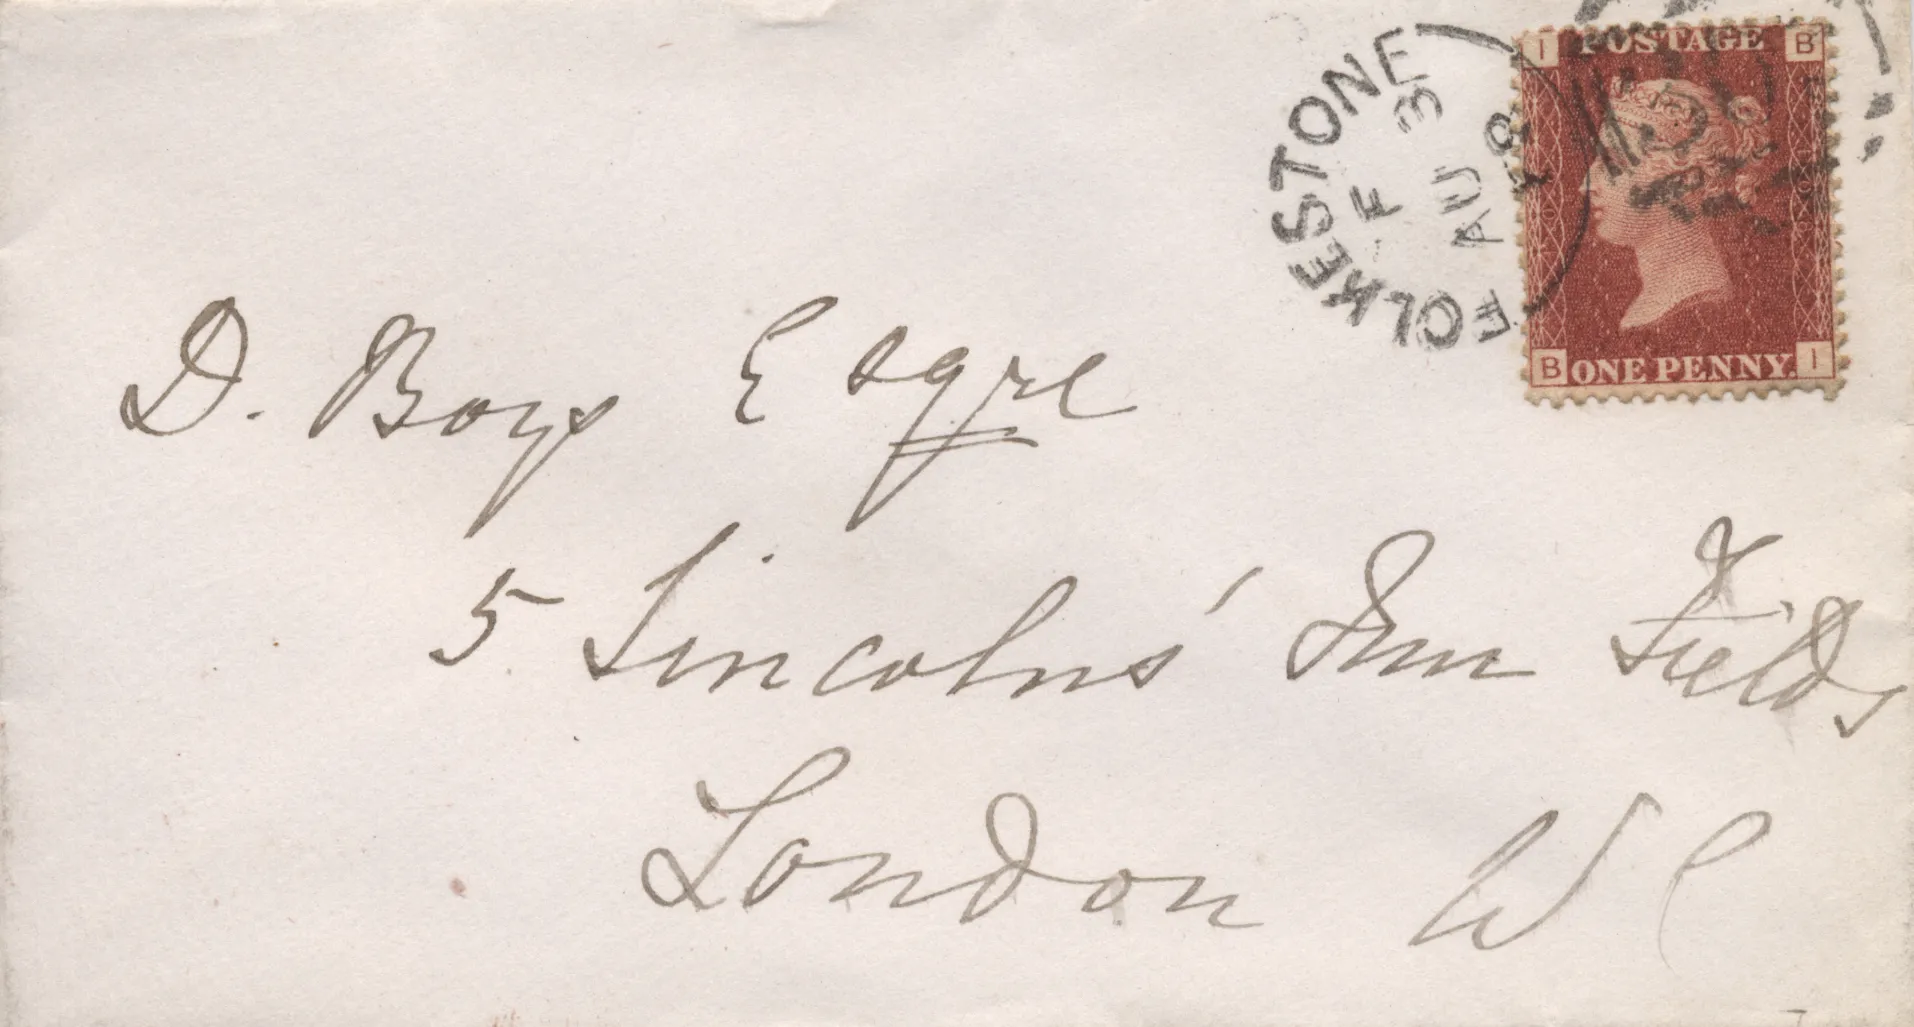 FOLKESTONE
F
AU 3
I POSTAGE B
B ONE PENNY. I
D. Boys Esqre
5 Lincolns' Inn Fields
London WC